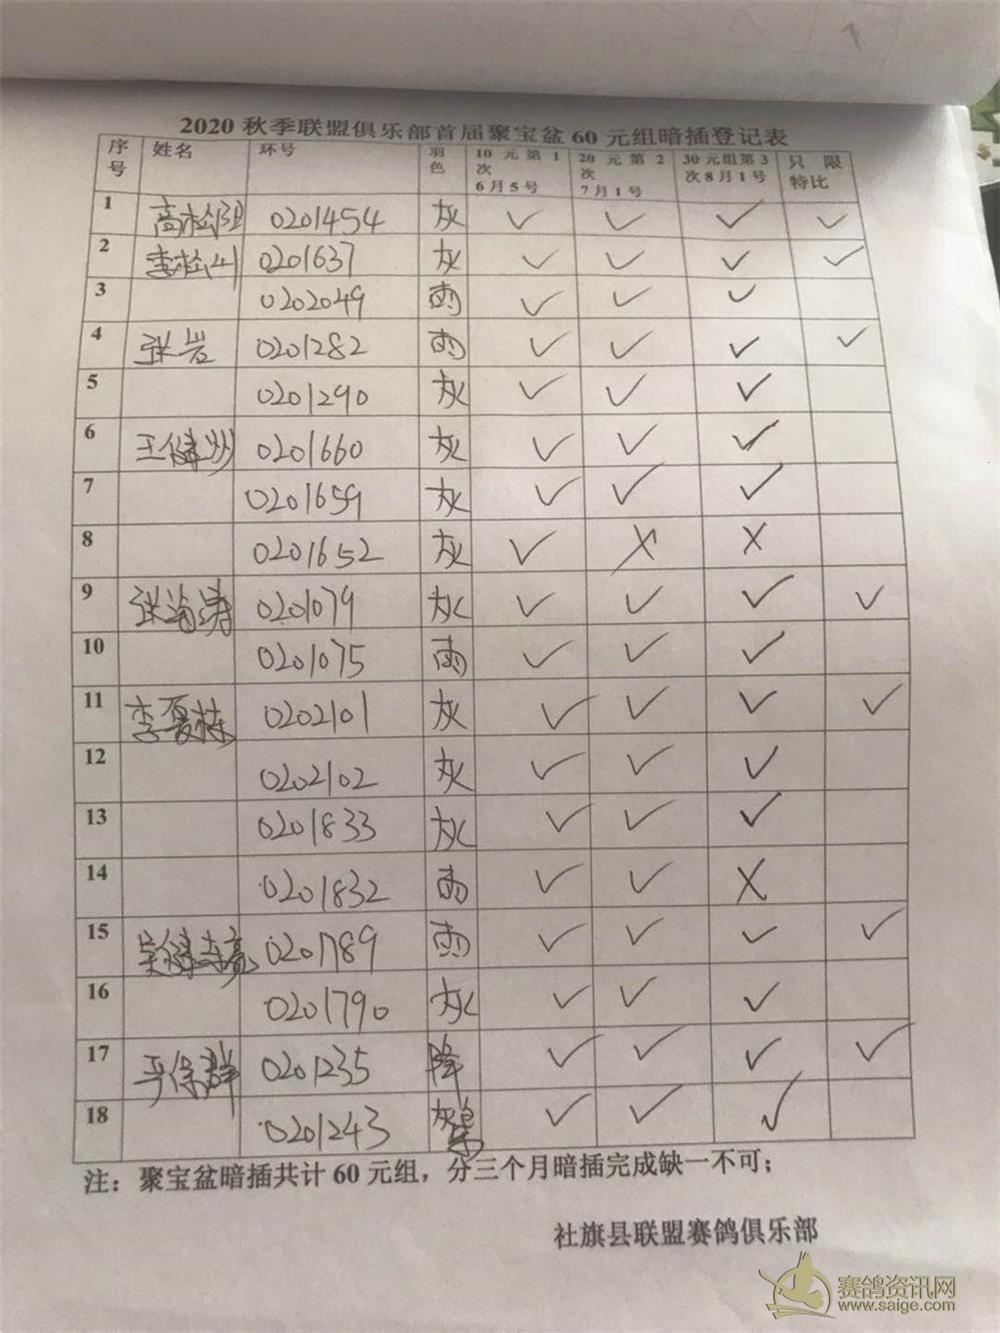 2020 秋季联盟俱乐部首届聚宝盆 60 元组暗插登记表
序号 姓名 环号 羽色 10 元第 1 次 6 月 5 号 20 元第 2 次 7 月 1 号 30 元组第 3 次 8 月 1 号 只限特比
1 0201454 灰 ✓ ✓ ✓ ✓
2 李松山 0201637 灰 ✓ ✓ ✓ ✓
3 0202049 雨 ✓ ✓ ✓
4 张岩 0201282 雨 ✓ ✓ ✓ ✓
5 0201290 灰 ✓ ✓ ✓
6 王健 0201660 灰 ✓ ✓ ✓
7 0201659 灰 ✓ ✓ ✓
8 0201652 灰 ✓ X X
9 张海涛 0201079 灰 ✓ ✓ ✓ ✓
10 0201075 雨 ✓ ✓ ✓
11 李夏栋 0202101 灰 ✓ ✓ ✓ ✓
12 0202102 灰 ✓ ✓ ✓
13 0201833 灰 ✓ ✓ ✓
14 0201832 雨 ✓ ✓ X
15 0201789 雨 ✓ ✓ ✓ ✓
16 0201790 灰 ✓ ✓ ✓
17 平保群 0201235 降 ✓ ✓ ✓ ✓
18 0201243 灰 ✓ ✓ ✓
注：聚宝盆暗插共计 60 元组，分三个月暗插完成缺一不可；
社旗县联盟赛鸽俱乐部
赛鸽资讯网
www.saige.com